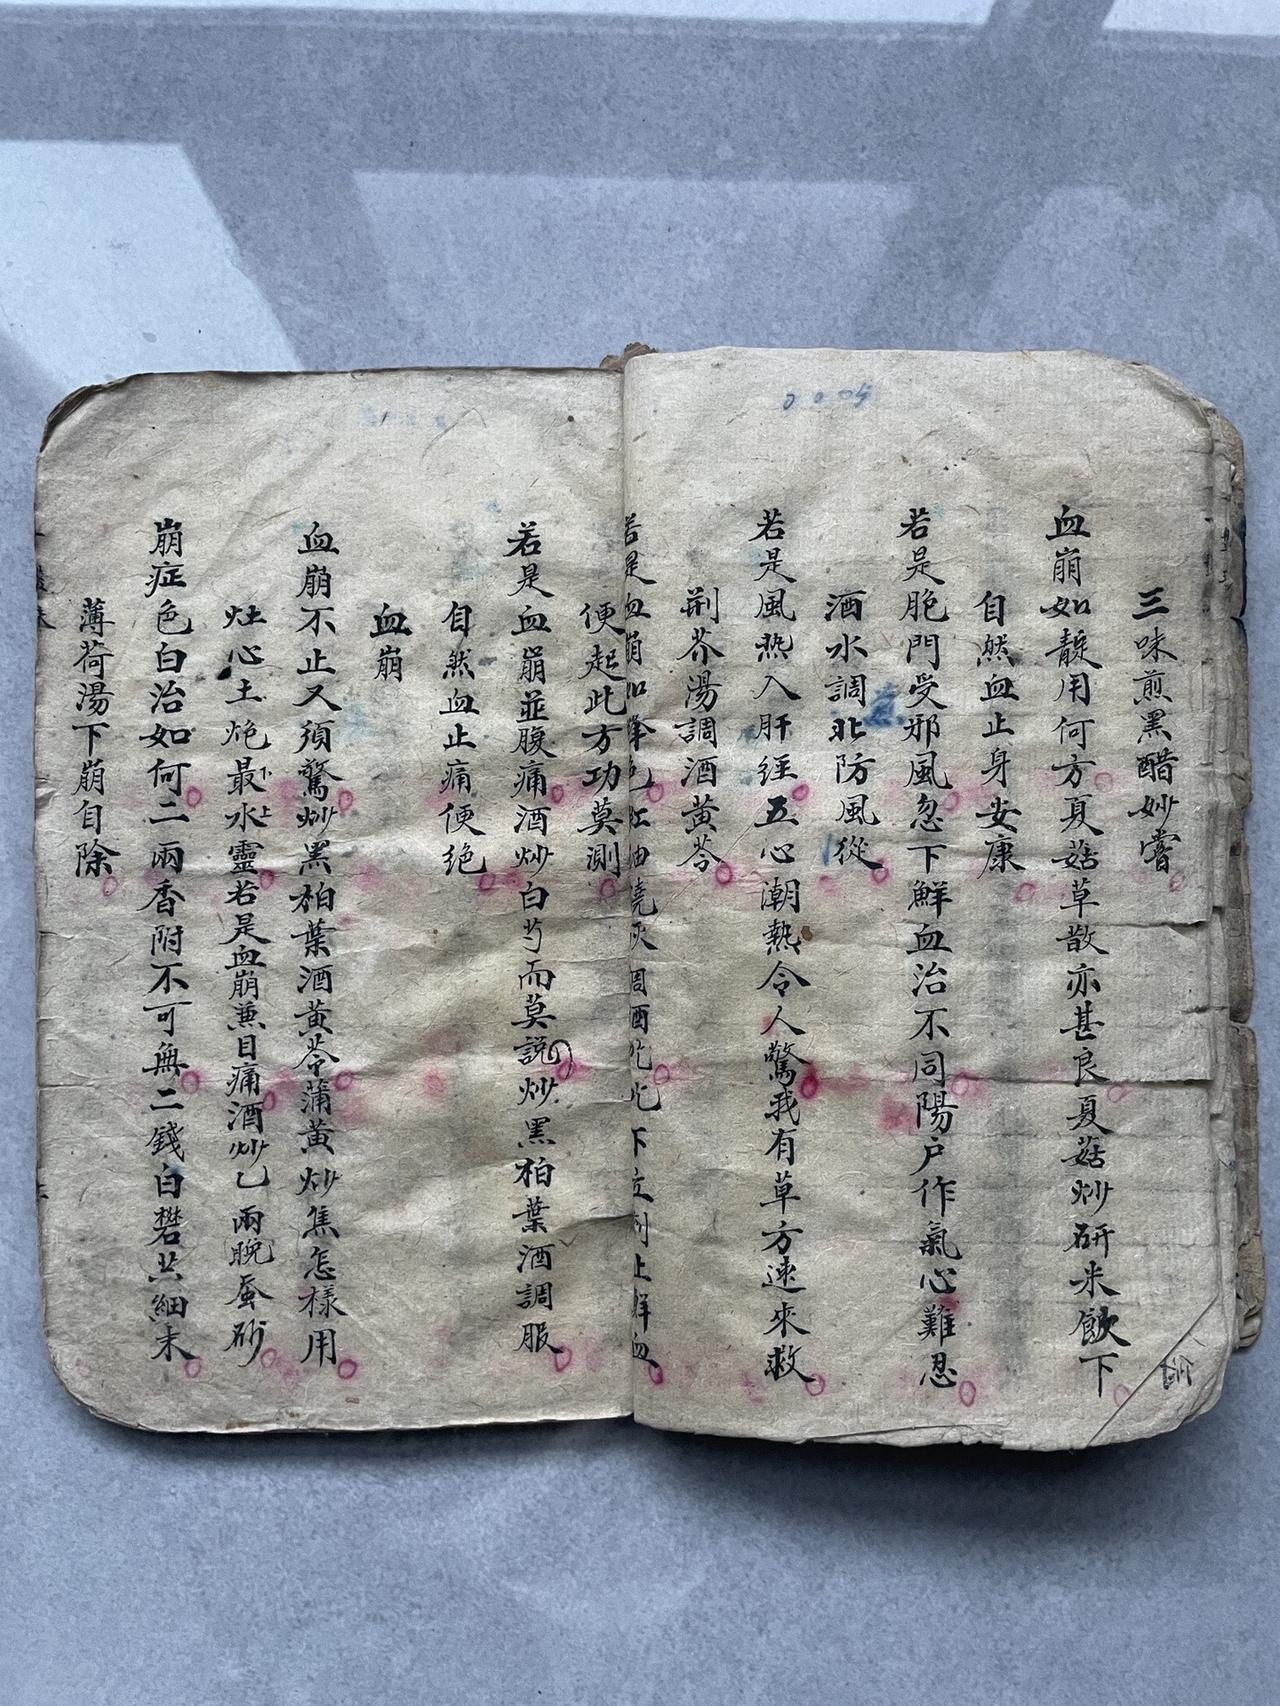 0005
三味煎黑醋妙嘗
血崩如靛用何方夏菇草散亦甚良夏菇炒研米飲下
自然血止身安康
若是胞門受邪風忽下鮮血治不同陽户作氣心難忍
酒水調北防風從
若是風热入肝経五心潮熱令人驚我有草方速來救
荆芥湯調酒黄芩
若是血崩
下立刻止鮮血
便起此方功莫測
若是血崩並腹痛酒炒白芍而莫説炒黑柏葉酒調服
自然血止痛便绝
血崩
血崩不止又須驚炒黑柏葉酒黄芩蒲黄炒焦怎様用
灶心土炮最水靈若是血崩兼目痛酒炒乙兩晚蚕砂
下上
崩症色白治如何二兩香附不可無二錢白礬共細末
薄荷湯下崩自除